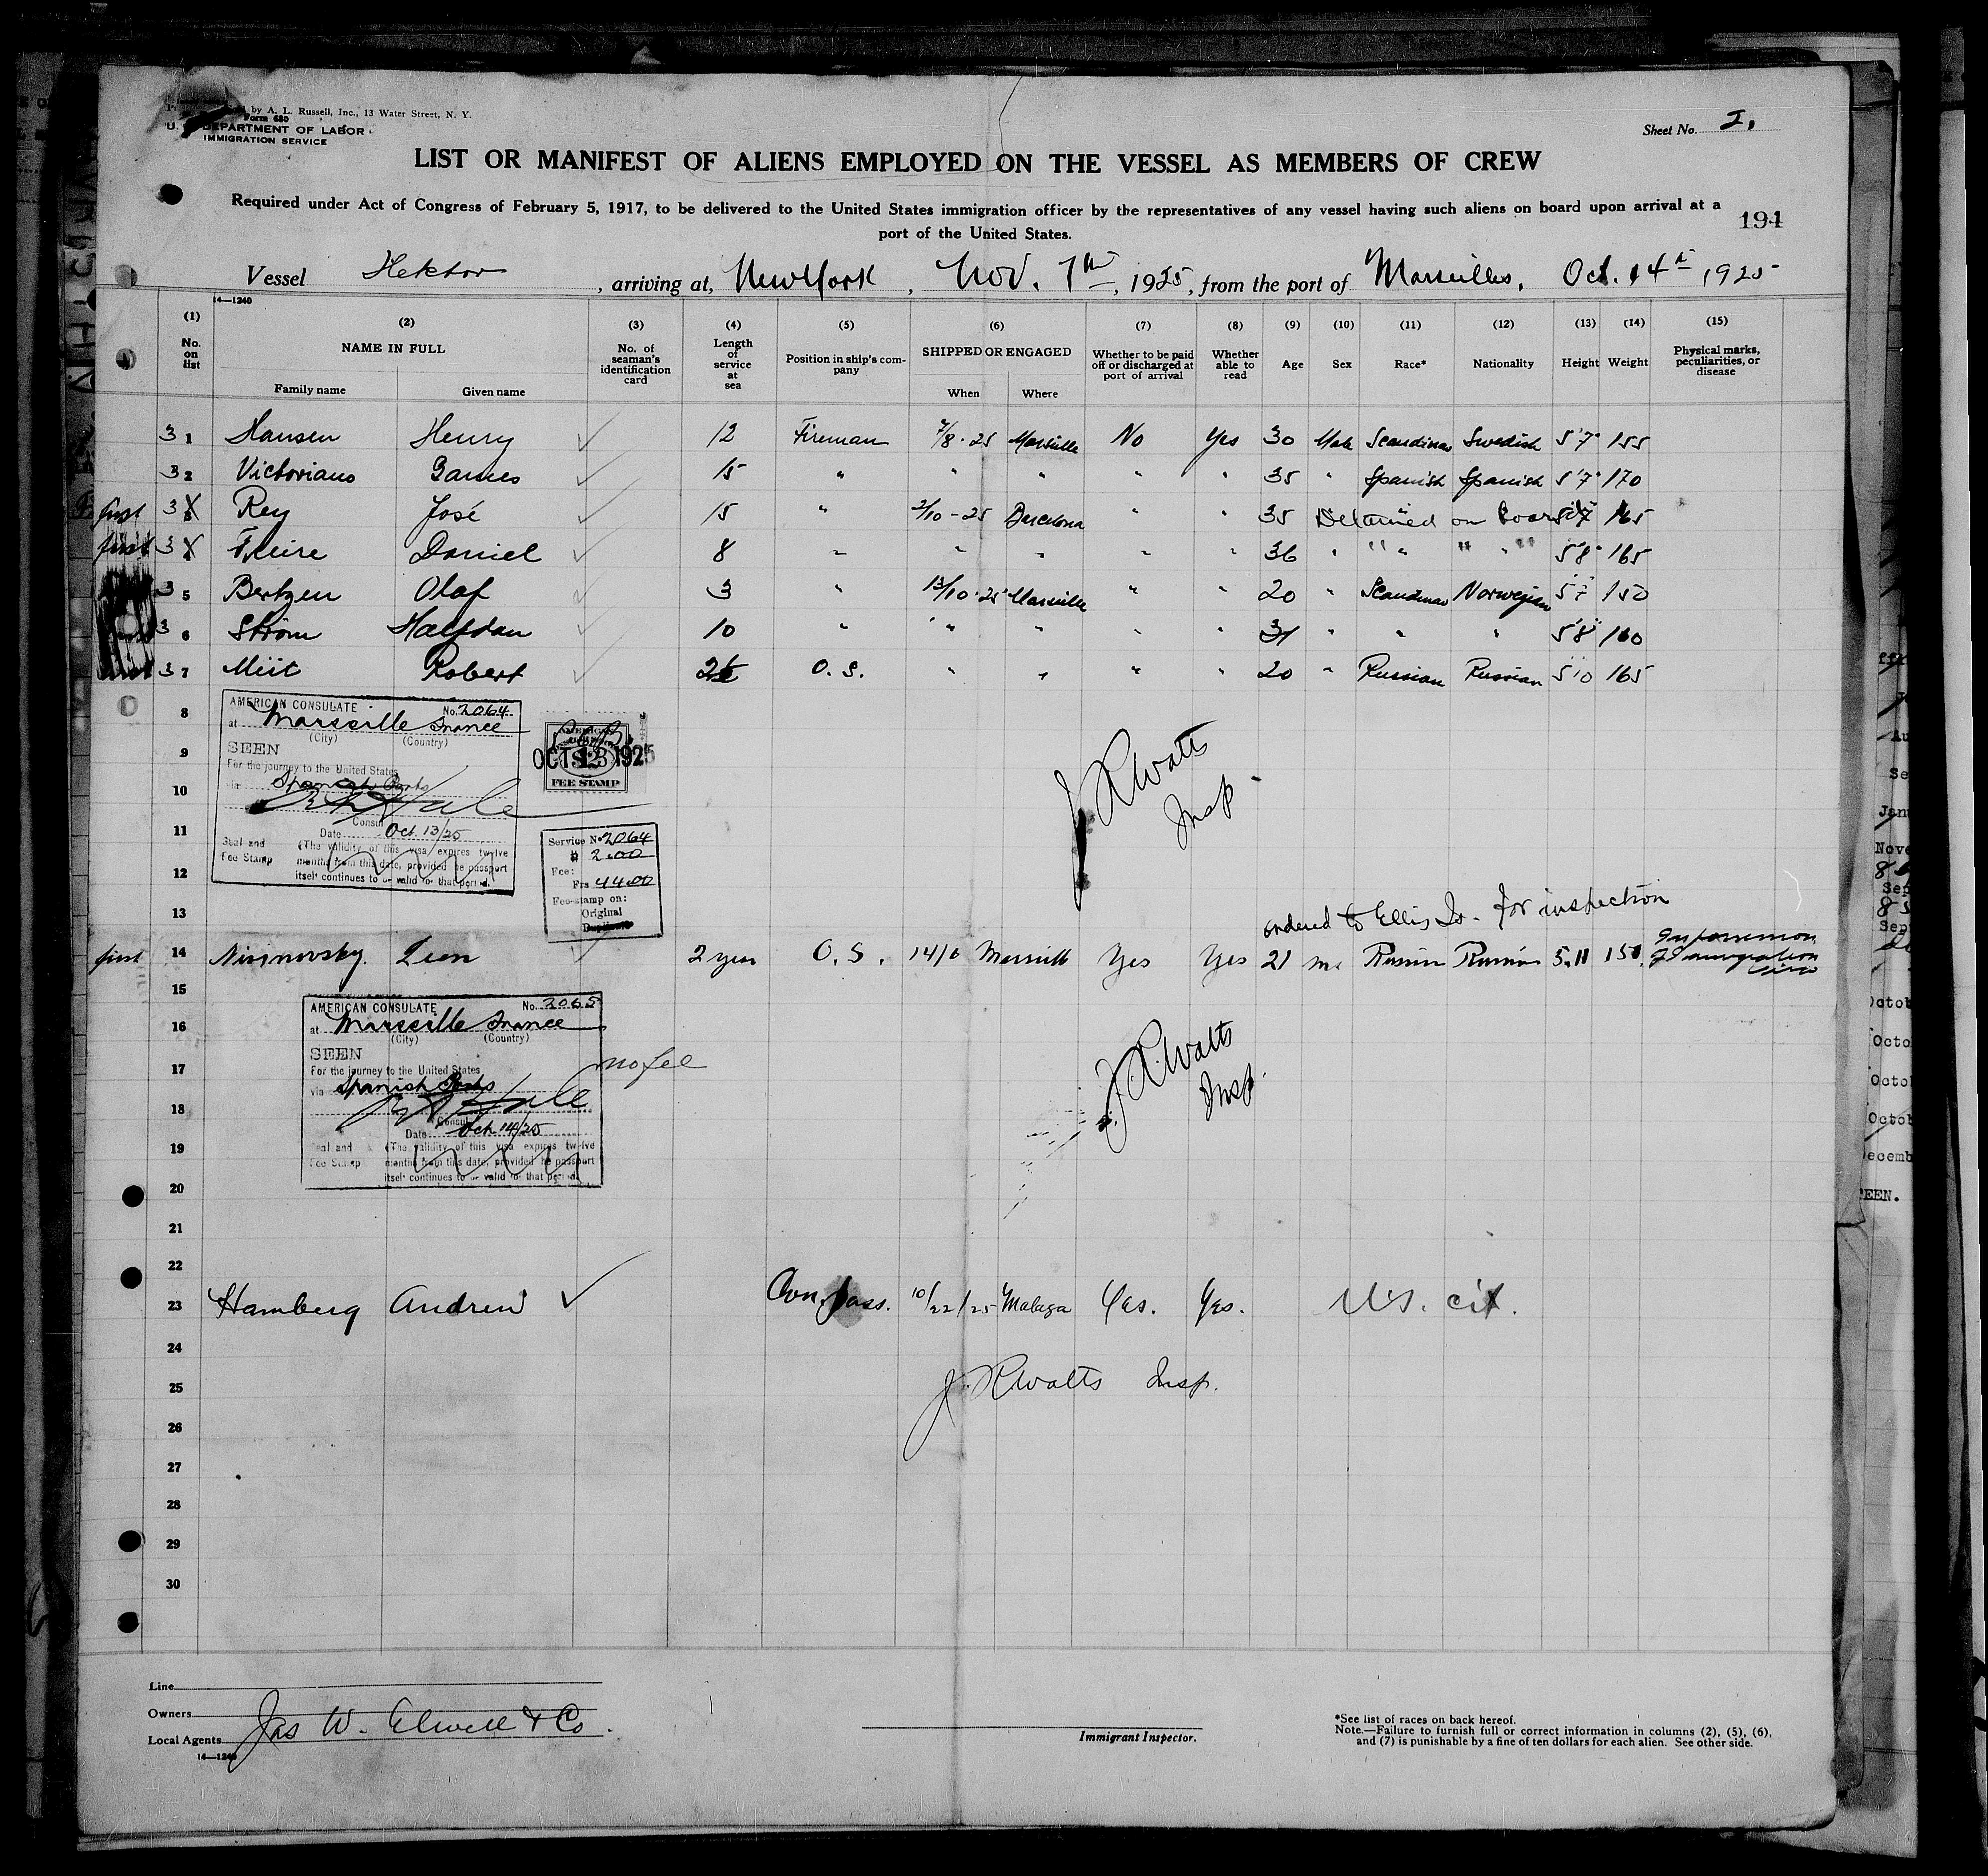 by A. L. Russell, Inc., 13 Water Street, N. Y.
Form 680
U. S. DEPARTMENT OF LABOR
IMMIGRATION SERVICE
Sheet No. 2.
LIST OR MANIFEST OF ALIENS EMPLOYED ON THE VESSEL AS MEMBERS OF CREW
Required under Act of Congress of February 5, 1917, to be delivered to the United States immigration officer by the representatives of any vessel having such aliens on board upon arrival at a
port of the United States.
194
Vessel Hektor, arriving at, New York, Nov. 7th, 1925, from the port of Marseilles, Oct. 14th 1925
14—1240
(1) No. on list (2) NAME IN FULL Family name Given name (3) No. of seaman's identification card (4) Length of service at sea (5) Position in ship's company (6) SHIPPED OR ENGAGED When Where (7) Whether to be paid off or discharged at port of arrival (8) Whether able to read (9) Age (10) Sex (11) Race* (12) Nationality (13) Height (14) Weight (15) Physical marks, peculiarities, or disease
31 Hansen Henry ✓ 12 Fireman 7/8-25 Marseille No Yes 30 Male Scandinav Swedish 5'7" 155
32 Victoriano Games ✓ 15 " " " " " 35 " Spanish Spanish 5'7" 170
first 3 Rey José ✓ 15 " 2/10-25 Barcelona " " 35 Detained on board 5'7 165
first 3 Freire Daniel ✓ 8 " " " " " 36 " " " 5'8" 165
35 Bertzen Olaf ✓ 3 " 13/10-25 Marseille " " 20 " Scandinav Norwegian 5'7 150
36 Strøm Halfdan ✓ 10 " " " " " 31 " " " 5'8" 160
37 Miit Robert ✓ O. S. " " " " 20 " Russian Russian 5'10 165
8
AMERICAN CONSULATE No. 2064
at Marseille France
(City) (Country)
SEEN
For the journey to the United States
via Spanish Ports
Consul
Date Oct. 13/25
Seal and Fee Stamp (The validity of this visa expires twelve
months from this date, provided the passport
itself continues to be valid for that period.
AMERICAN
OCT 13 1925
FEE STAMP
Service No 2064
$ 2.00
Fee:
Frs 44.00
Fee-stamp on:
Original
Duplicate
J R Watts
Insp
9
10
11
12
13
ordered to Ellis Is. for inspection
first 14 Nisinovsky Leon 2 year O. S. 14/10 Marseille Yes Yes 21 m. Russian Russian 5.11 150
15
AMERICAN CONSULATE No. 2065
at Marseille France
(City) (Country)
SEEN
For the journey to the United States
via Spanish Ports
Consul
Date Oct 14/25
Seal and Fee Stamp (The validity of this visa expires twelve
months from this date, provided the passport
itself continues to be valid for that period.
no fee
J. R. Watts
Insp.
16
17
18
19
20
21
22
23 Hamberg Andrew ✓ Con. pass. 10/22/25 Malaga Yes. Yes. U.S. cit.
24
25 J. R Watts Insp.
26
27
28
29
30
Line
Owners
Local Agents Jas W. Elwell & Co.
14—1240
Immigrant Inspector.
*See list of races on back hereof.
Note.—Failure to furnish full or correct information in columns (2), (5), (6),
and (7) is punishable by a fine of ten dollars for each alien. See other side.